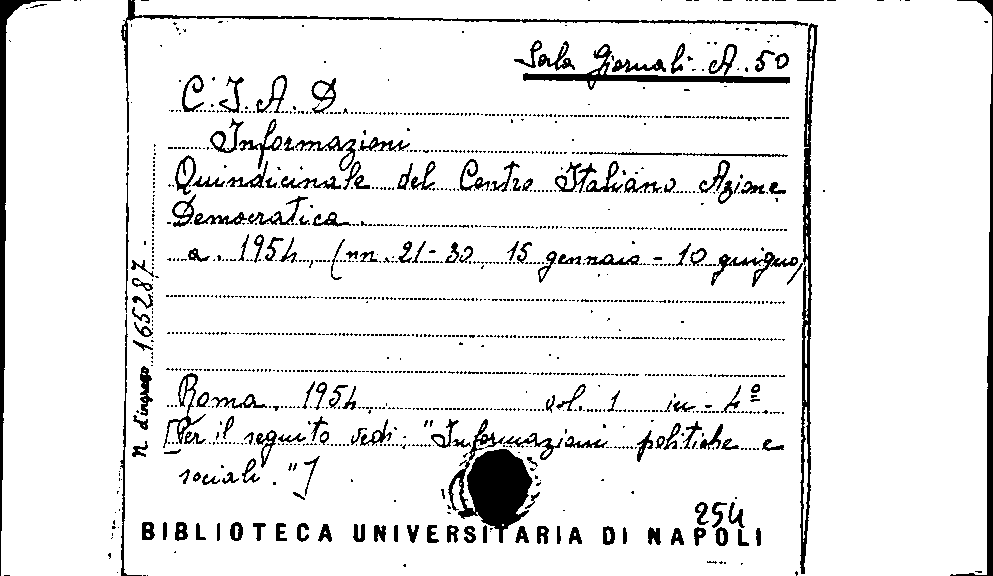 Sala Giornali A. 50
C.I.A.D.
Informazioni
Quindicinale del Centro Italiano Azione
Democratica.
a. 1954, (nn. 21-30, 15 gennaio - 10 giugno)
N. d'ingresso 165287.
Roma, 1954. vol. 1 in-4º.
[Per il seguito vedi: "Informazioni politiche e
sociali."]
254
BIBLIOTECA UNIVERSITARIA DI NAPOLI